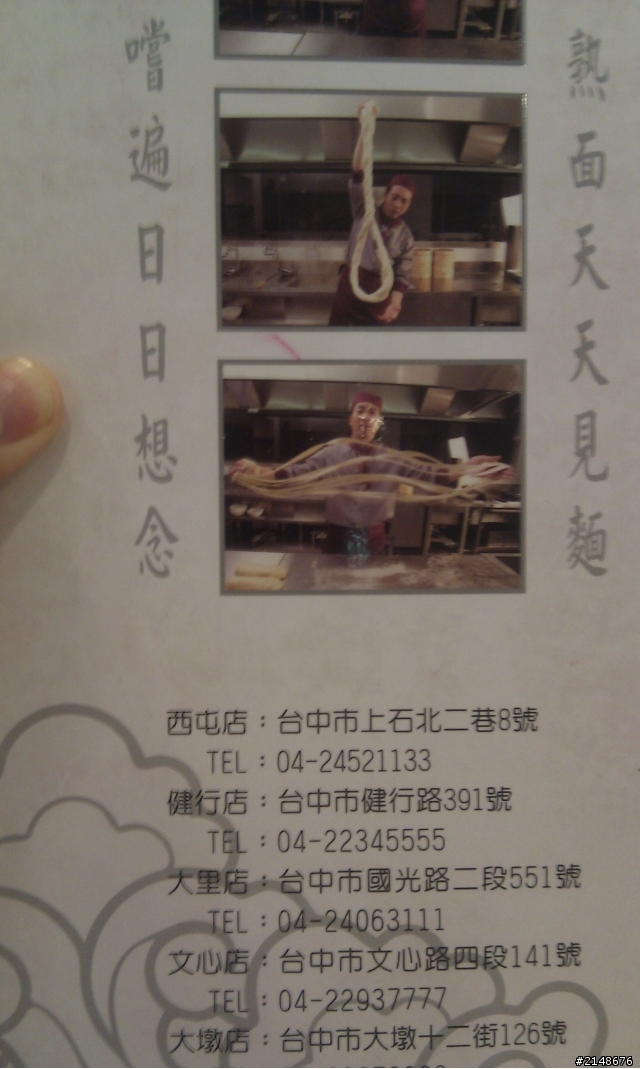 熟面天天見麵
嚐遍日日想念
西屯店：台中市上石北二巷8號
TEL：04-24521133
健行店：台中市健行路391號
TEL：04-22345555
大里店：台中市國光路二段551號
TEL：04-24063111
文心店：台中市文心路四段141號
TEL：04-22937777
大墩店：台中市大墩十二街126號
#2148676